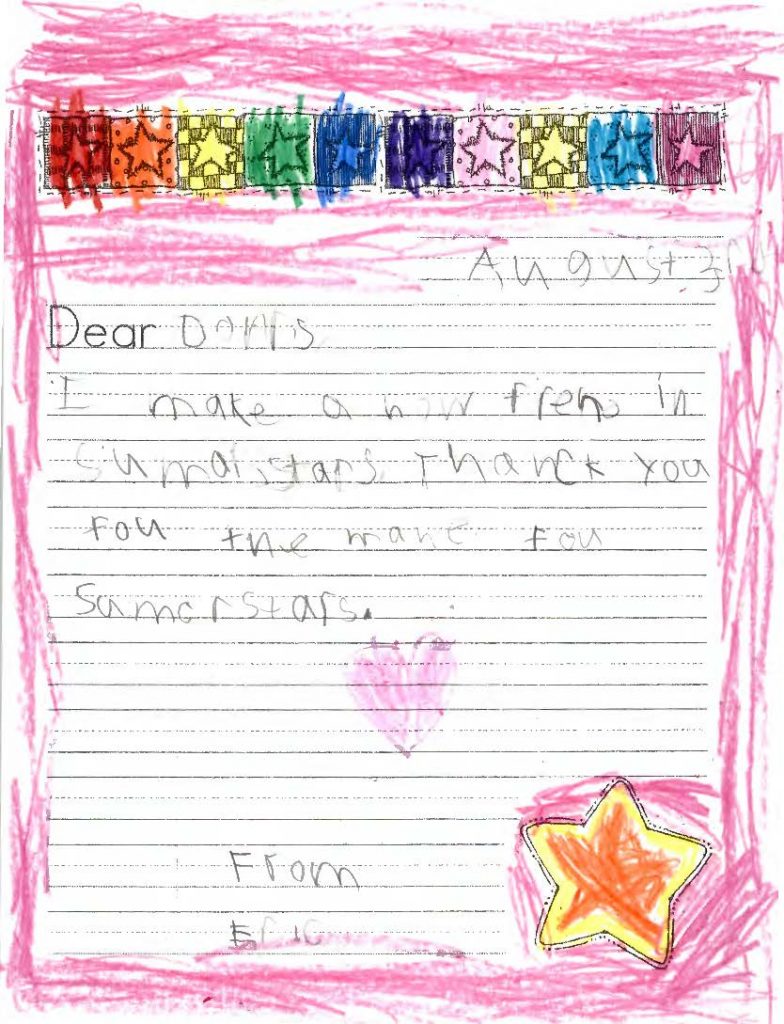 August 3rd
Dear Dorris
I make a now frens in
Sumarstars Thanck you
fou the mane fou
Sumerstars.
From
Eric